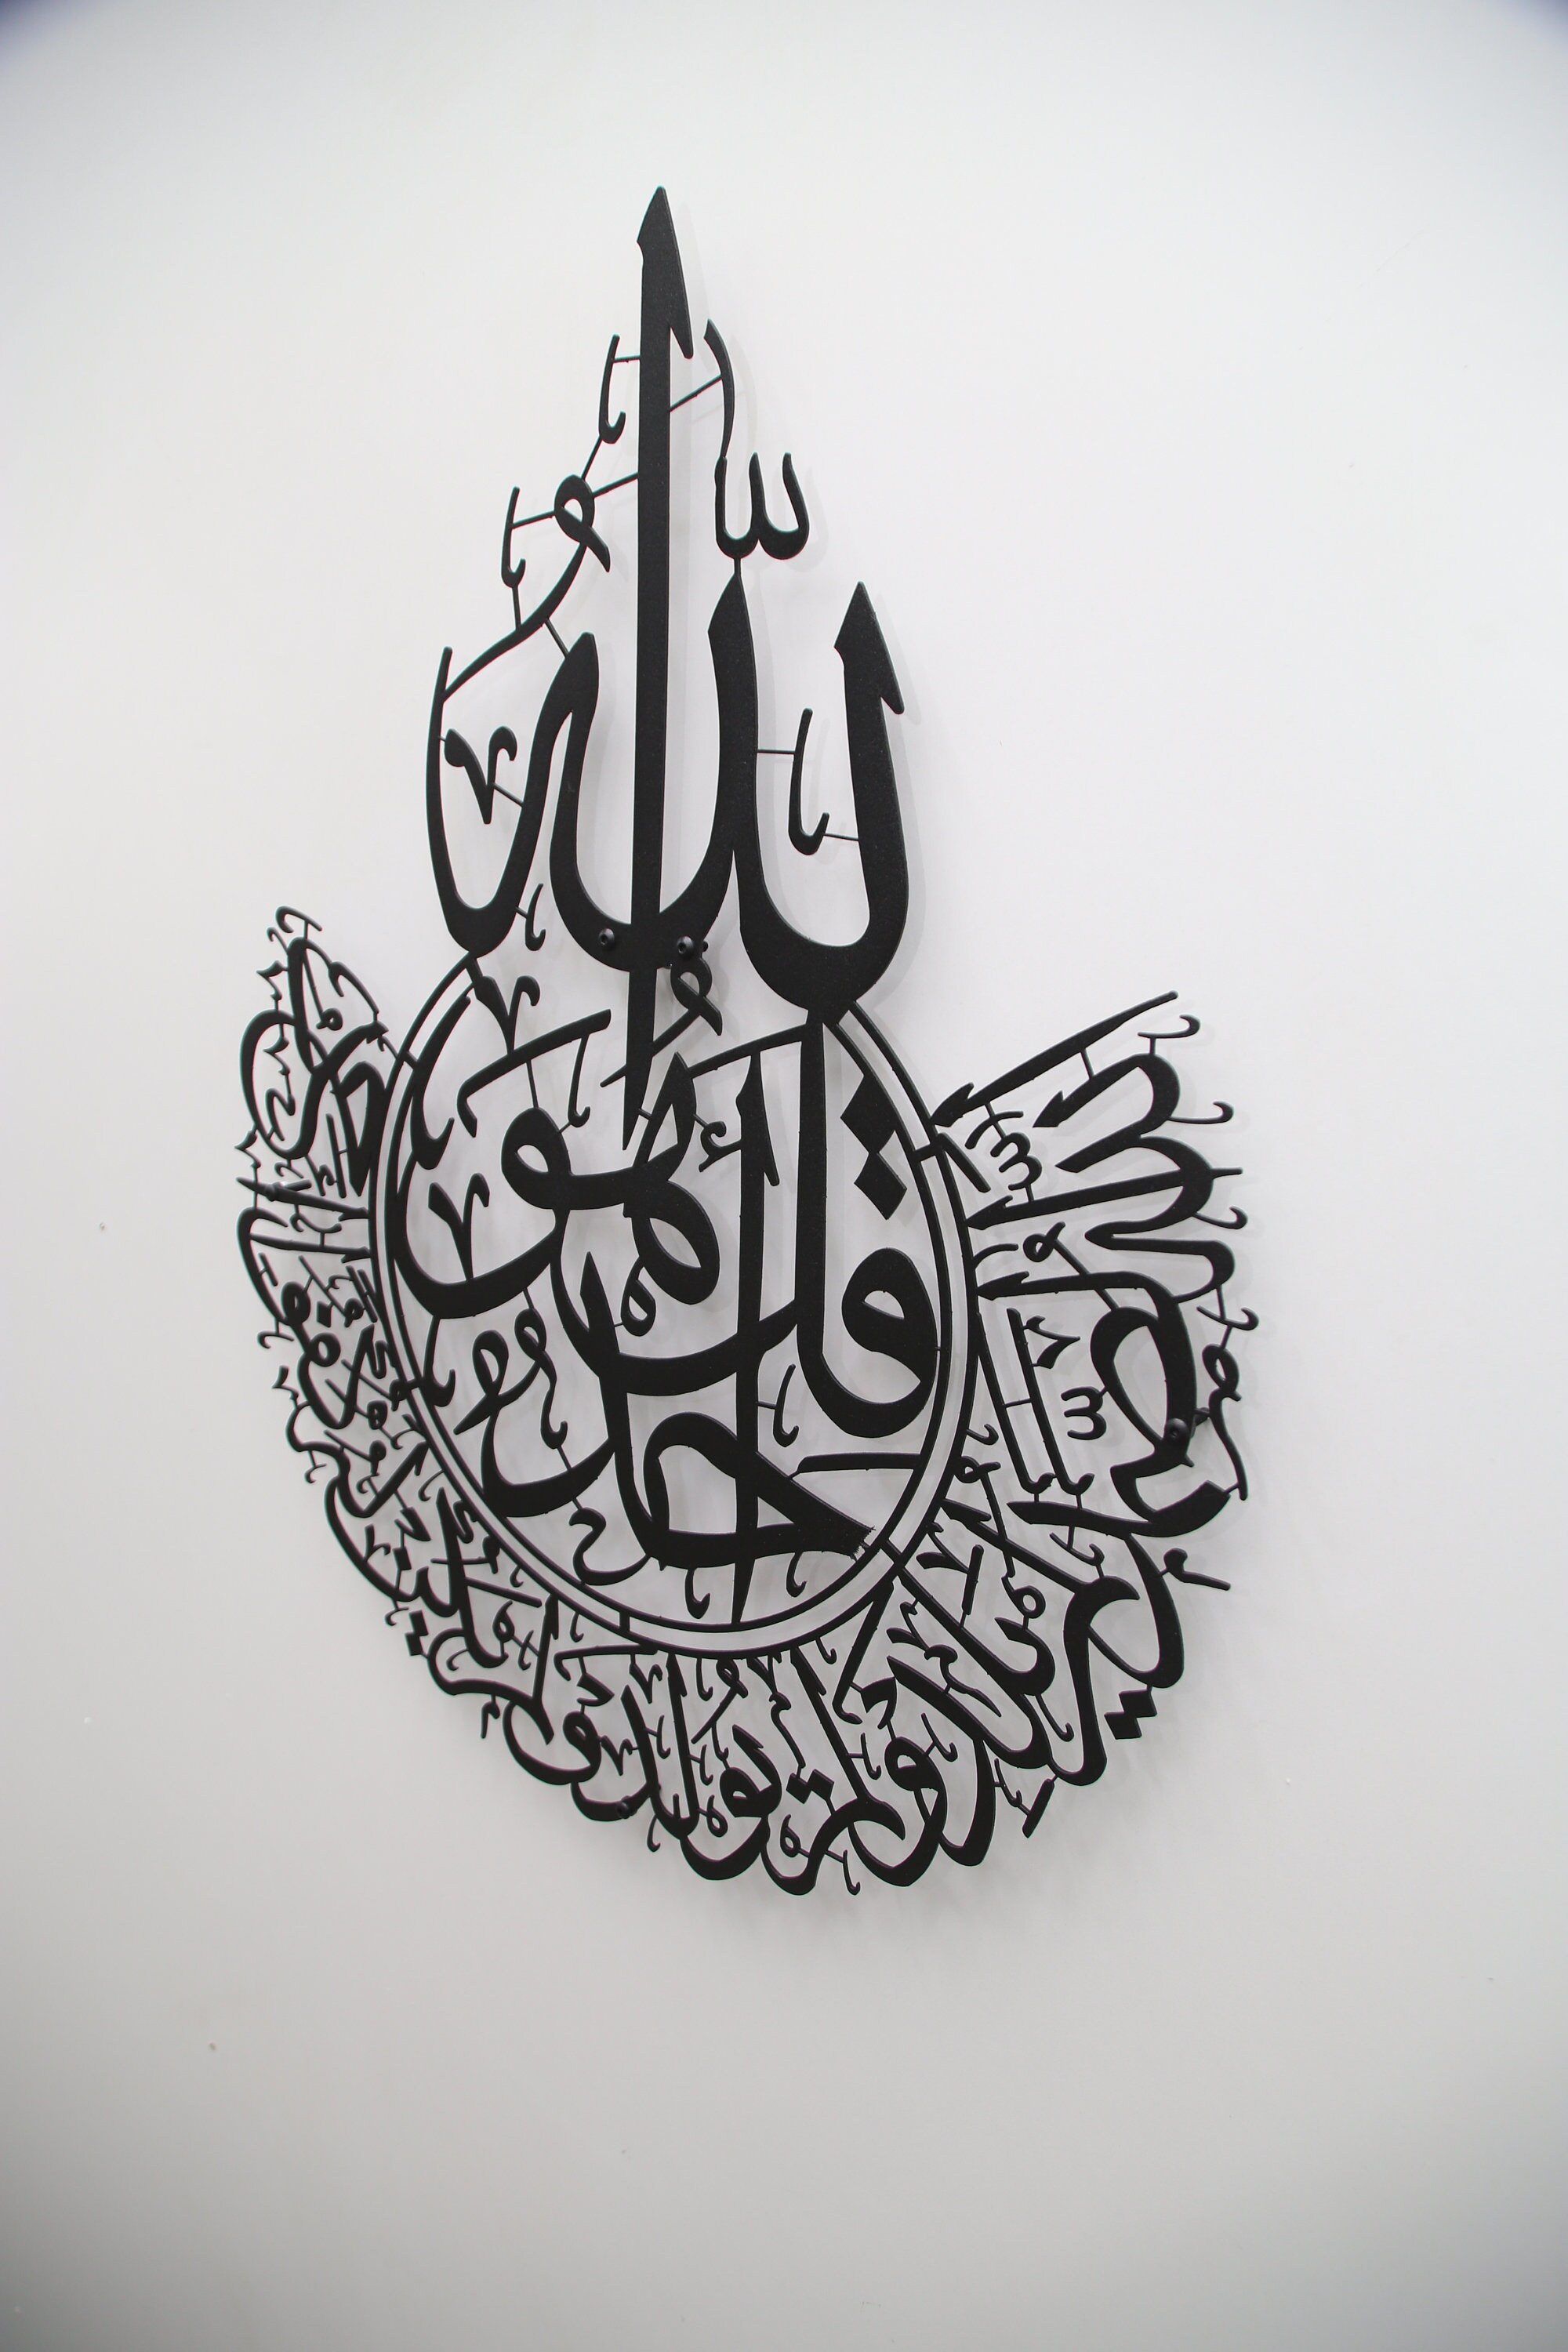 قُلْ هُوَ اللّٰهُ أَحَدٌ
اللّٰهُ الصَّمَدُ لَمْ يَلِدْ وَلَمْ يُولَدْ وَلَمْ يَكُنْ لَهُ كُفُوًا أَحَدٌ